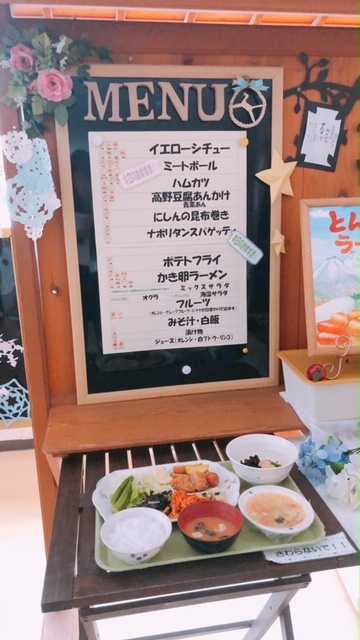 MENU
イエローシチュー
ミートボール
ハムカツ
高野豆腐あんかけ
青菜あん
にしんの昆布巻き
ナポリタンスパゲッティ
ポテトフライ
かき卵ラーメン
ミックスサラダ
オクラ 海藻サラダ
フルーツ
みそ汁・白飯
漬け物
とん
ラー
さわらないで!!